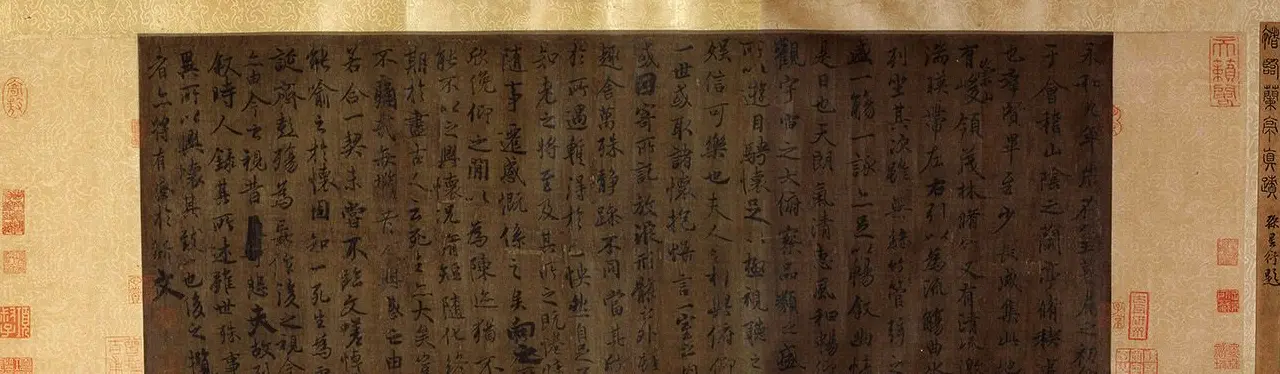 褚臨蘭亭真蹟 孫星衍題
天籟閣
永和九年歲在癸丑暮春之初
于會稽山陰之蘭亭脩禊事
也群賢畢至少長咸集此地
有崇山峻領茂林脩竹又有清流激
湍暎帶左右引以為流觴曲水
列坐其次雖無絲竹管弦之
盛一觴一詠亦足以暢敘幽情
是日也天朗氣清惠風和暢
觀宇宙之大俯察品類之盛
所以遊目騁懷足以極視聽之
娛信可樂也夫人之相與俯仰
一世或取諸懷抱悟言一室之內
或因寄所託放浪形骸之外雖
趣舍萬殊靜躁不同當其欣
於所遇暫得於己怏然自足
知老之將至及其所之既惓情
隨事遷感慨係之矣向之
欣俛仰之閒以為陳迹猶不
能不以之興懷況脩短隨化終
期於盡古人云死生亦大矣豈
不痛哉每攬昔人興感之由
若合一契未嘗不臨文嗟悼
能喻之於懷固知一死生為虛
誕齊彭殤為妄作後之視今
亦由今之視昔悲夫故列
敘時人錄其所述雖世殊事
異所以興懷其致一也後之攬
者亦將有感於斯文